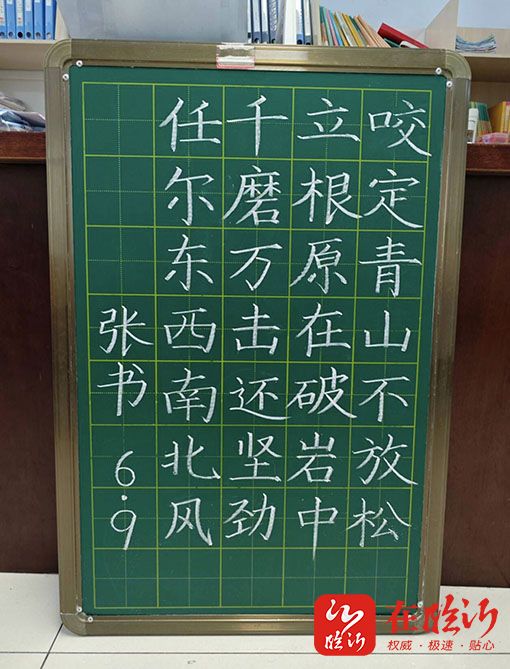 咬定青山不放松
立根原在破岩中
千磨万击还坚劲
任尔东西南北风
张书 6.9
在临沂
权威·极速·贴心
临沂